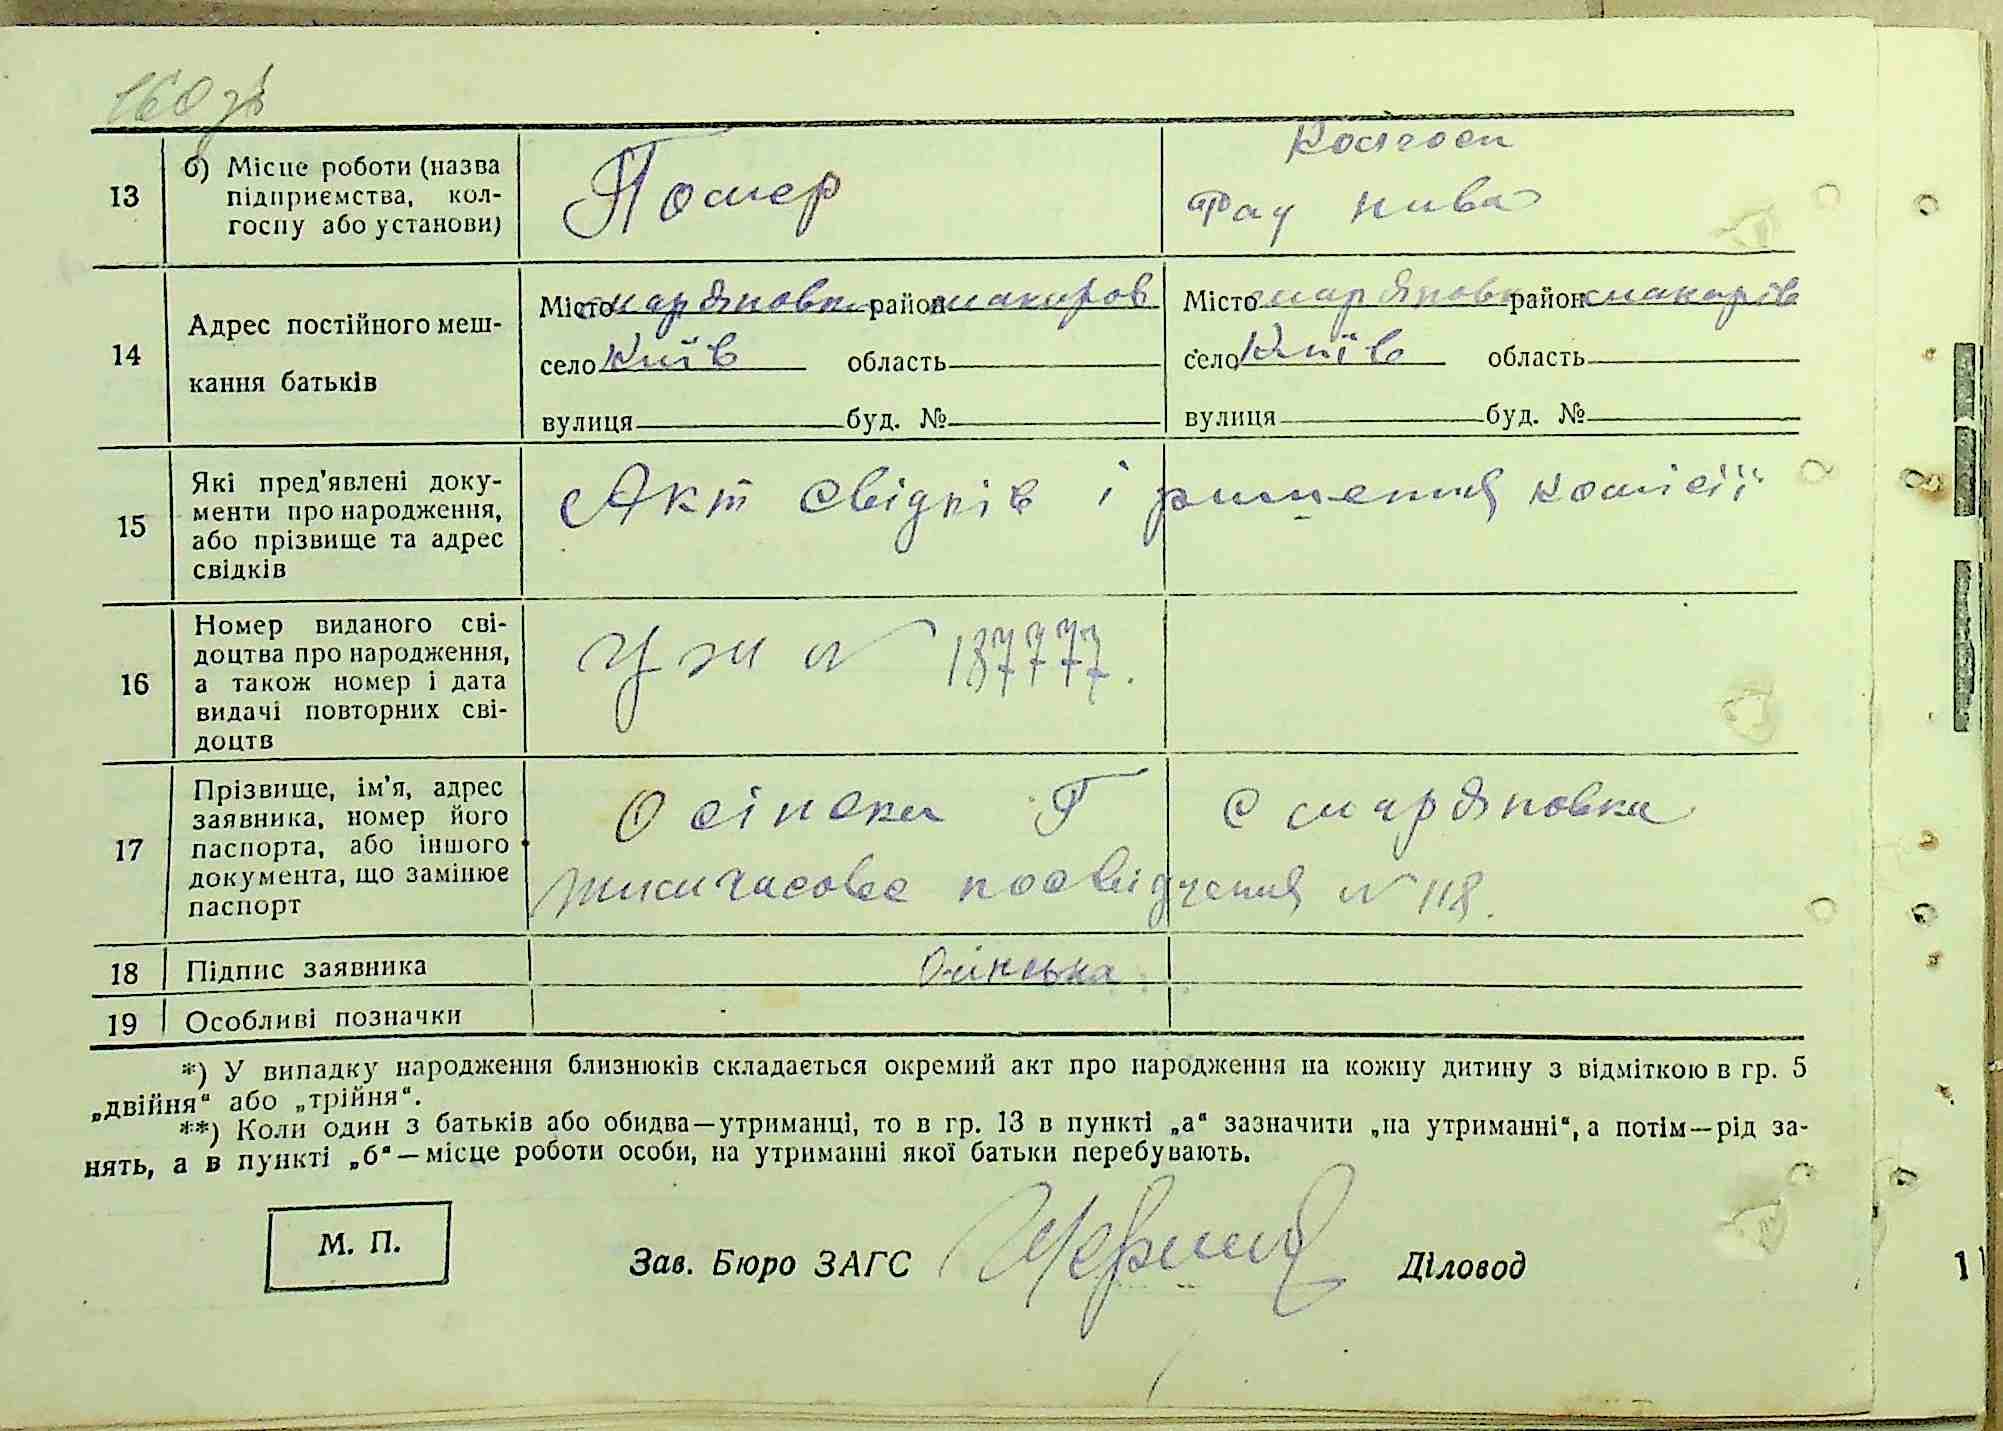 160 зв
13 б) Місце роботи (назва Помер Колгосп
підприємства, кол- нива
госпу або установи)
14 Адрес постійного меш- Місто мардяновка район макаров Місто мардяновка район макарів
кання батьків село Київ область село Київ область
вулиця буд. № вулиця буд. №
15 Які пред'явлені доку- Акт свідків і ришения комісії
менти про народження,
або прізвище та адрес
свідків
16 Номер виданого сві- № 187777.
доцтва про народження,
а також номер і дата
видачі повторних сві-
доцтв
17 Прізвище, ім'я, адрес Осінски Г с мардяновка
заявника, номер його
паспорта, або іншого тимчасове посвидчения № 118.
документа, що замінює
паспорт
18 Підпис заявника Осінська
19 Особливі позначки
*) У випадку народження близнюків складається окремий акт про народження на кожну дитину з відміткою в гр. 5
„двійня“ або „трійня“.
**) Коли один з батьків або обидва—утриманці, то в гр. 13 в пункті „а“ зазначити „на утриманні“, а потім—рід за-
нять, а в пункті „б“—місце роботи особи, на утриманні якої батьки перебувають.
М. П. Зав. Бюро ЗАГС Діловод
1